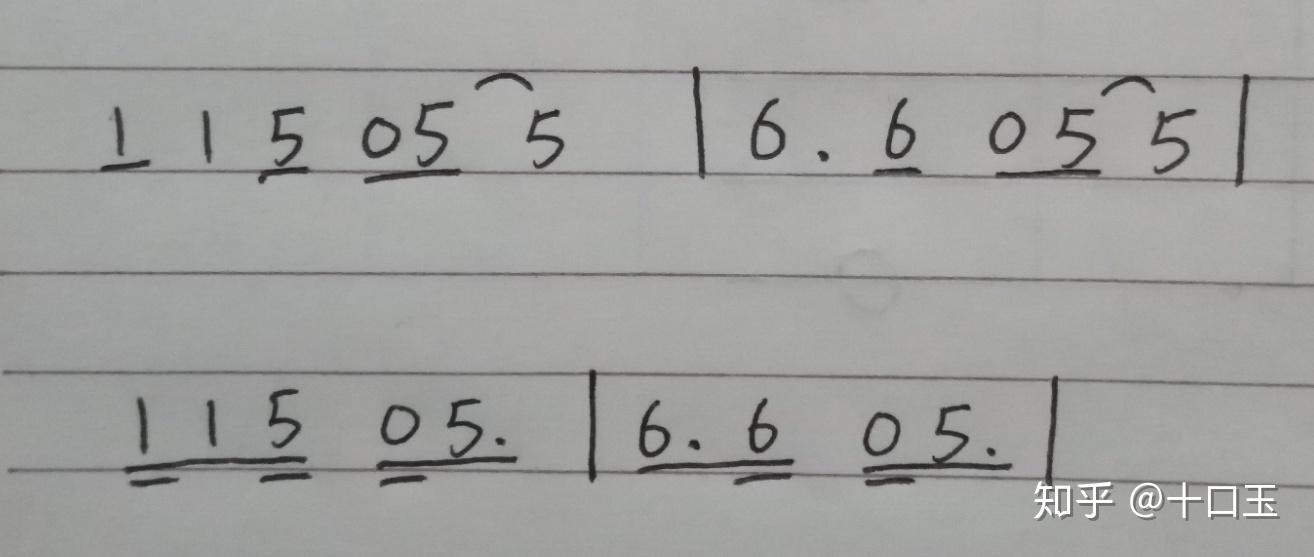 1 1 5 05 5 | 6. 6 05 5 |
1 1 5 0 5. | 6. 6 0 5. |
知乎 @十口玉